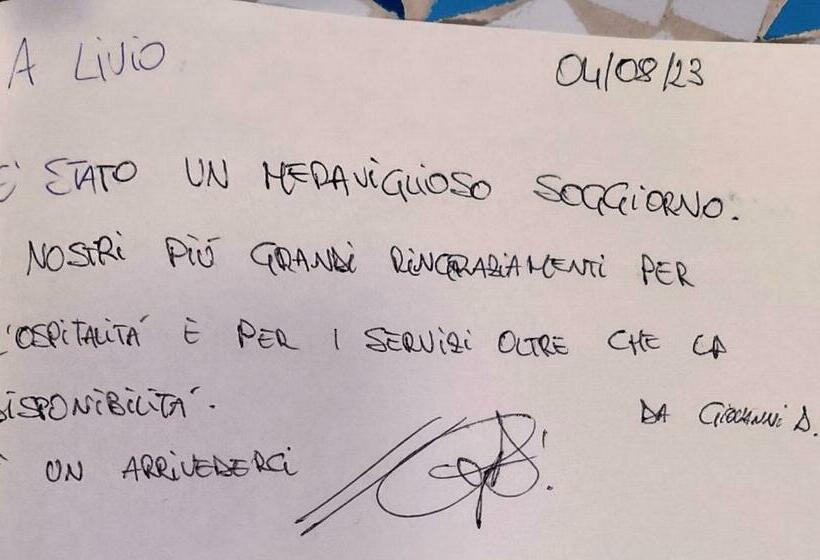 A LIVIO
04/08/23
E' STATO UN MERAVIGLIOSO SOGGIORNO.
NOSTRI PIÚ GRANDI RINGRAZIAMENTI PER
L'OSPITALITÁ È PER I SERVIZI OLTRE CHE LA
DISPONIBILITÁ.
DA GIOVANNI D.
UN ARRIVEDERCI